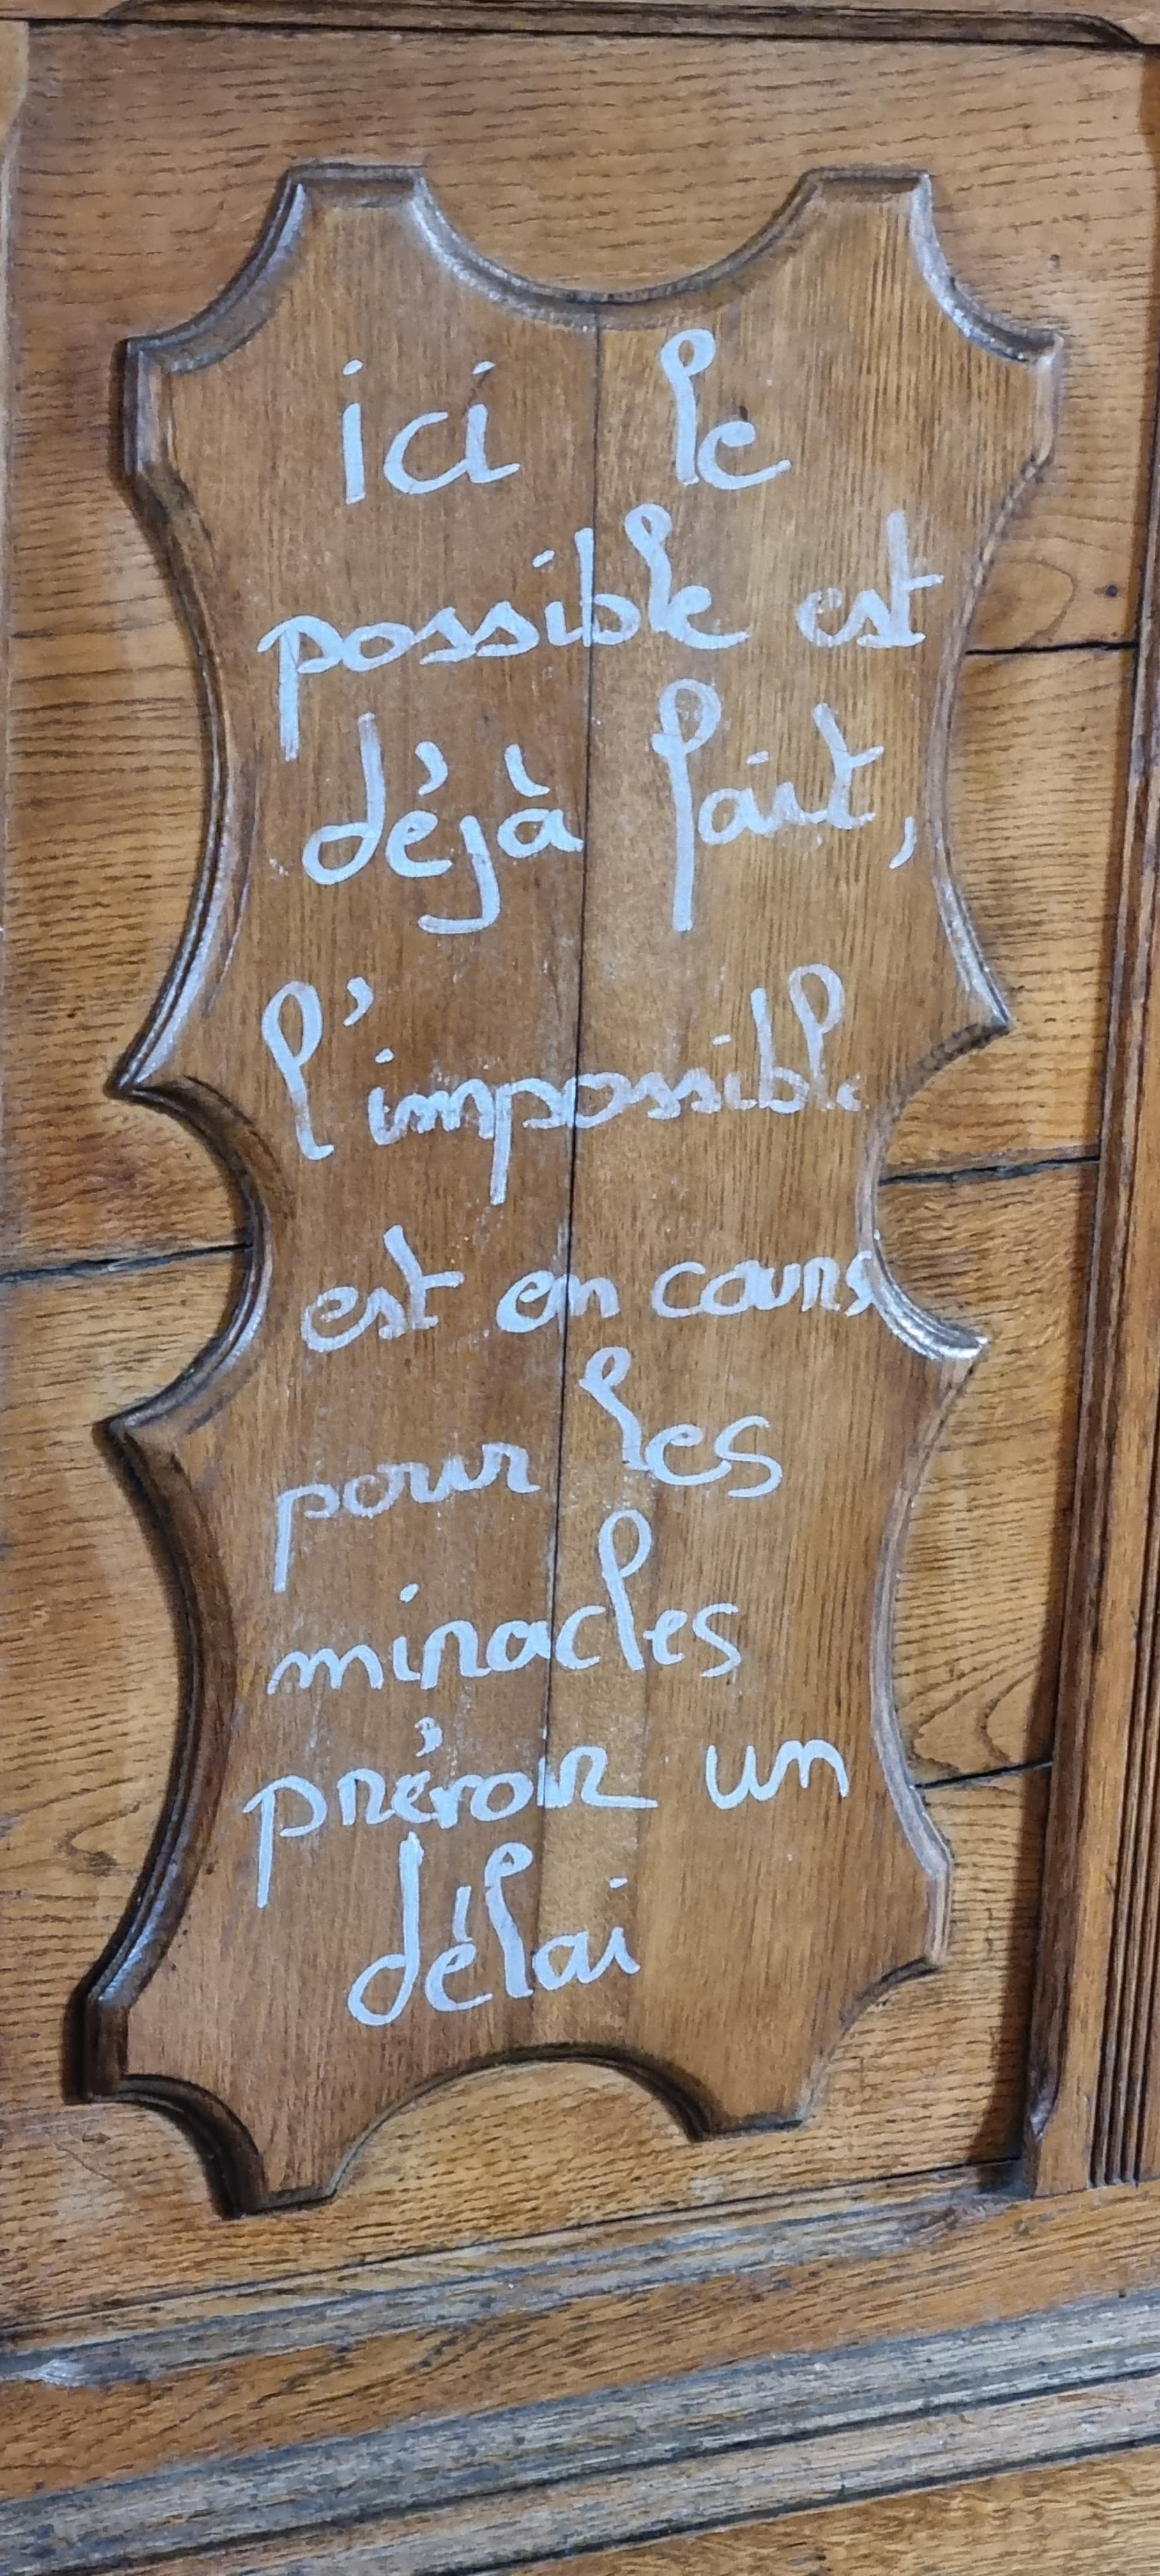 ici le
possible est
déjà fait,
l'impossible
est en cours
pour les
miracles
prévoir un
délai